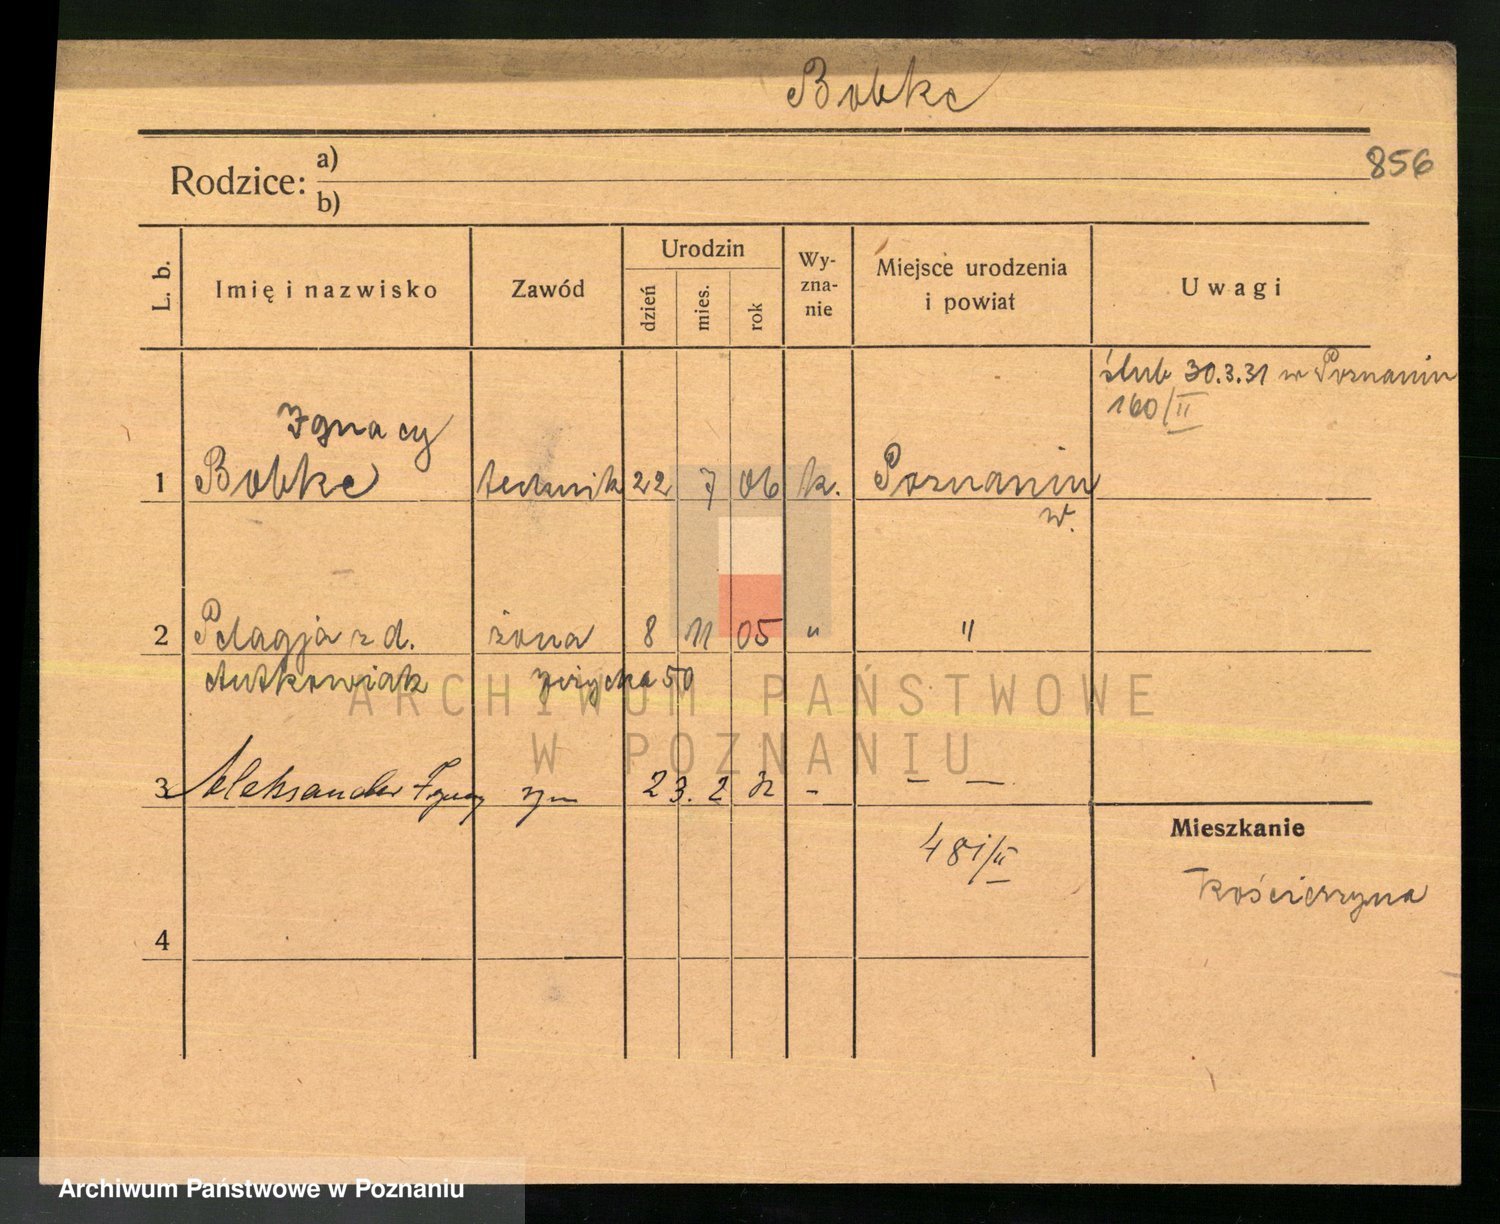 Bobke
856
Rodzice: a)
b)
L. b.
Imię i nazwisko
Zawód
Urodzin
dzień
mies.
rok
Wy-
zna-
nie
Miejsce urodzenia
i powiat
Uwagi
ślub 30.3.31 w Poznaniu
160/II
Ignacy
1 Bobke technik 22 7 06 k. Poznaniu
w.
2 Pelagja z d. żona 8 11 05 " "
Antkowiak
50
ARCHIWUM PAŃSTWOWE
W POZNANIU
3 Aleksander Ignacy syn 23. 2 32 - — —
481/II
Mieszkanie
Kościerzyna
4
Archiwum Państwowe w Poznaniu